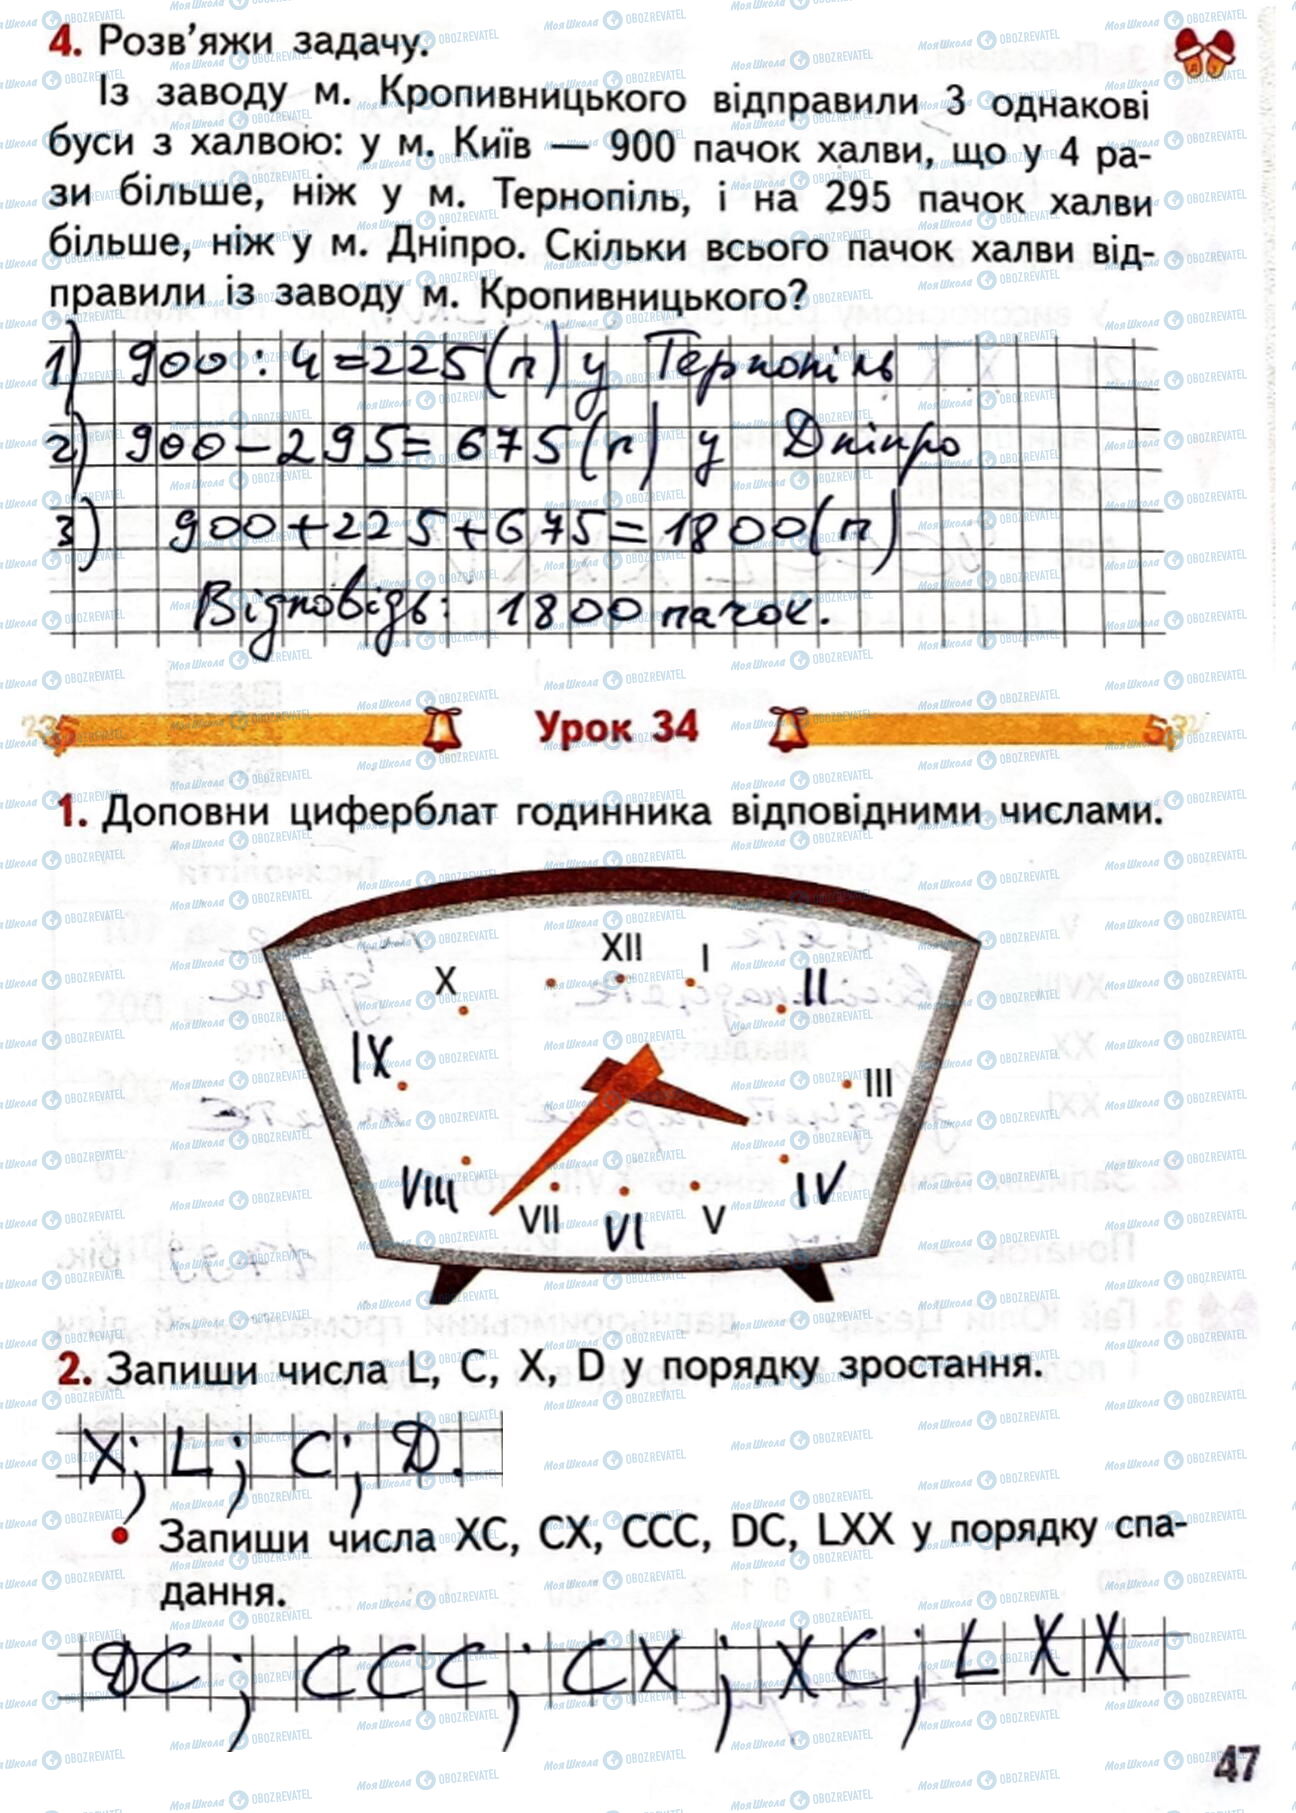 4. Розв'яжи задачу.
Із заводу м. Кропивницького відправили 3 однакові
буси з халвою: у м. Київ — 900 пачок халви, що у 4 ра-
зи більше, ніж у м. Тернопіль, і на 295 пачок халви
більше, ніж у м. Дніпро. Скільки всього пачок халви від-
правили із заводу м. Кропивницького?
1) 900 : 4 = 225 (п) у Тернопіль
2) 900 - 295 = 675 (п) у Дніпро
3) 900 + 225 + 675 = 1800 (п)
Відповідь: 1800 пачок.
Урок 34
1. Доповни циферблат годинника відповідними числами.
XII
I
X
II
IX
III
VIII
IV
VII
VI
V
2. Запиши числа L, C, X, D у порядку зростання.
X; L; C; D.
• Запиши числа XC, CX, CCC, DC, LXX у порядку спа-
дання.
DC; CCC; CX; XC; LXX
47
МояШкола OBOZREVATEL